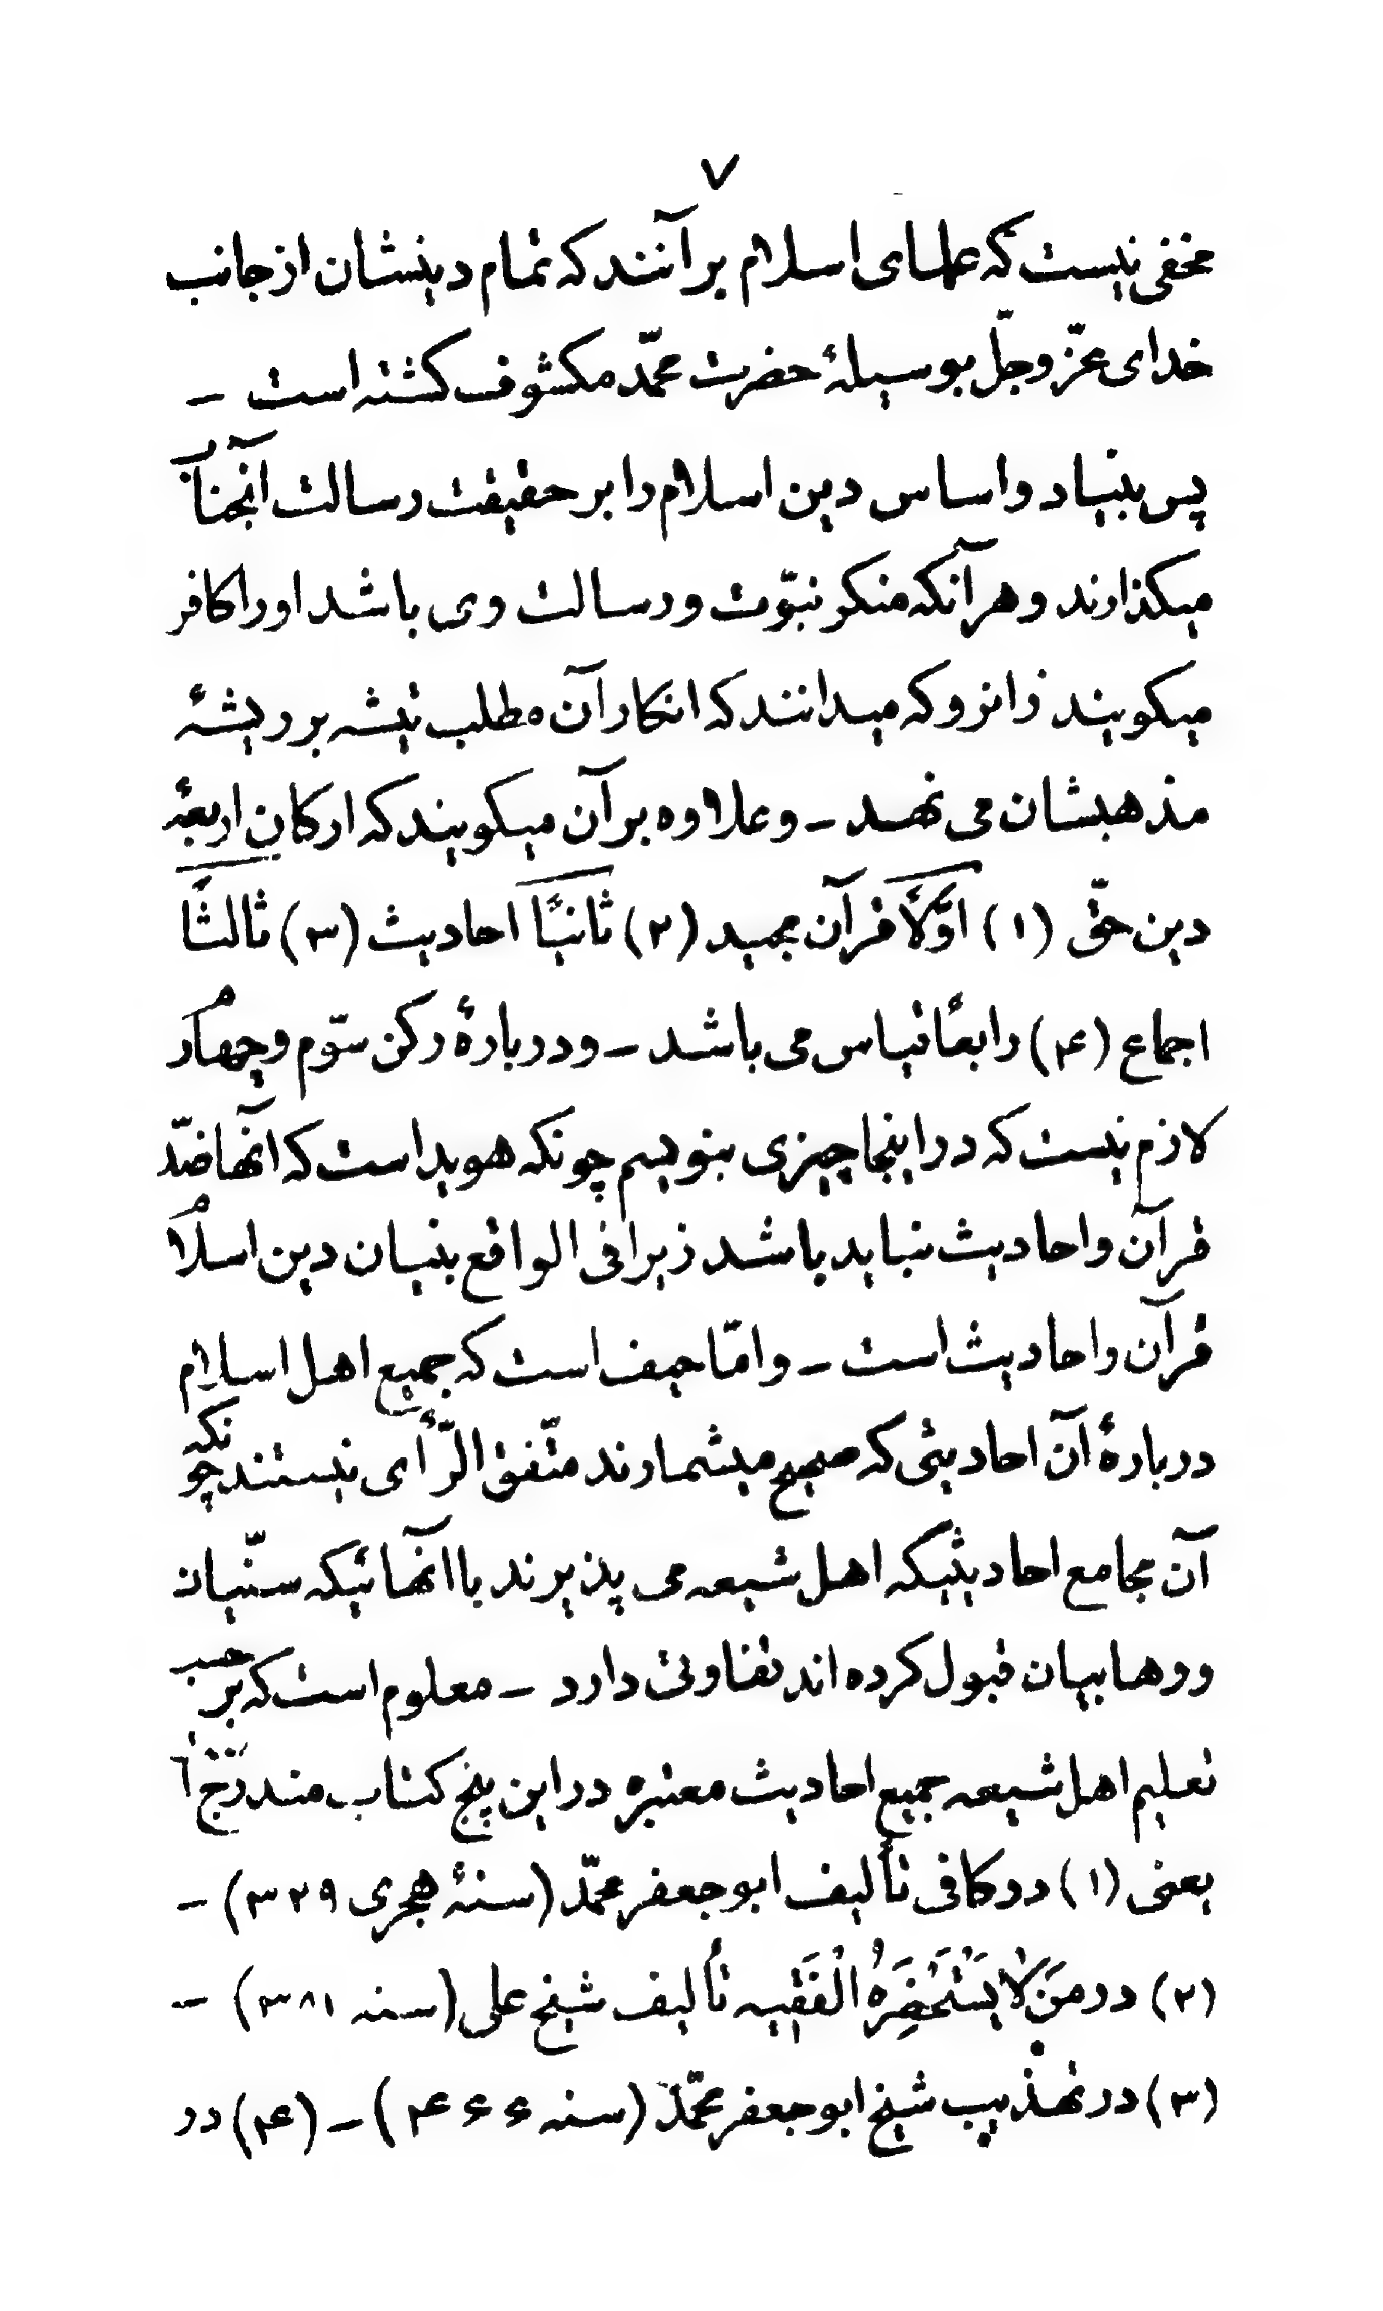 ۷
مخفی نیست که علمای اسلام برآنند که تمام دینشان از جانب
خدای عزّ وجلّ بوسیلهٔ حضرت محمّد مکشوف گشته است –
پس بنیاد و اساس دین اسلام را بر حقیقت رسالت آنجناب
میگذارند و هرآنکه منکر نبوّت و رسالت وی باشد او را کافر
میگویند زانرو که میدانند که انکار آن مطلب تیشه بر ریشهٔ
مذهبشان می نهد – و علاوه بر آن میگویند که ارکان اربعهٔ
دین حقّ (۱) اوّلاً قرآن مجید (۲) ثانیاً احادیث (۳) ثالثاً
اجماع (۴) رابعاً قیاس می باشد – و دربارهٔ رکن سوّم و چهارم
لازم نیست که در اینجا چیزی بنویسم چونکه هویداست که آنها ضدّ
قرآن و احادیث نباید باشد زیرا فی الواقع بنیان دین اسلام
قرآن و احادیث است – و امّا حیف است که جمیع اهل اسلام
دربارهٔ آن احادیثی که صحیح میشمارند متّفق الرّأی نیستند چونکه
آن مجامع احادیثیکه اهل شیعه می پذیرند با آنهائیکه سنّیان
و وهابیان قبول کرده اند تفاوتی دارد – معلوم است که برحسب
تعلیم اهل شیعه جمیع احادیث معتبره در این پنج کتاب مندرج است
یعنی (۱) در کافی تألیف ابو جعفر محمّد (سنهٔ هجری ۳۲۹) –
(۲) در مَنْ لَا یَسْتَحْضِرَهُ الْفَقِیه تألیف شیخ علی (سنه ۳۸۱) –
(۳) در تهذیب شیخ ابو جعفر محمّد (سنه ۴۶۶) – (۴) در